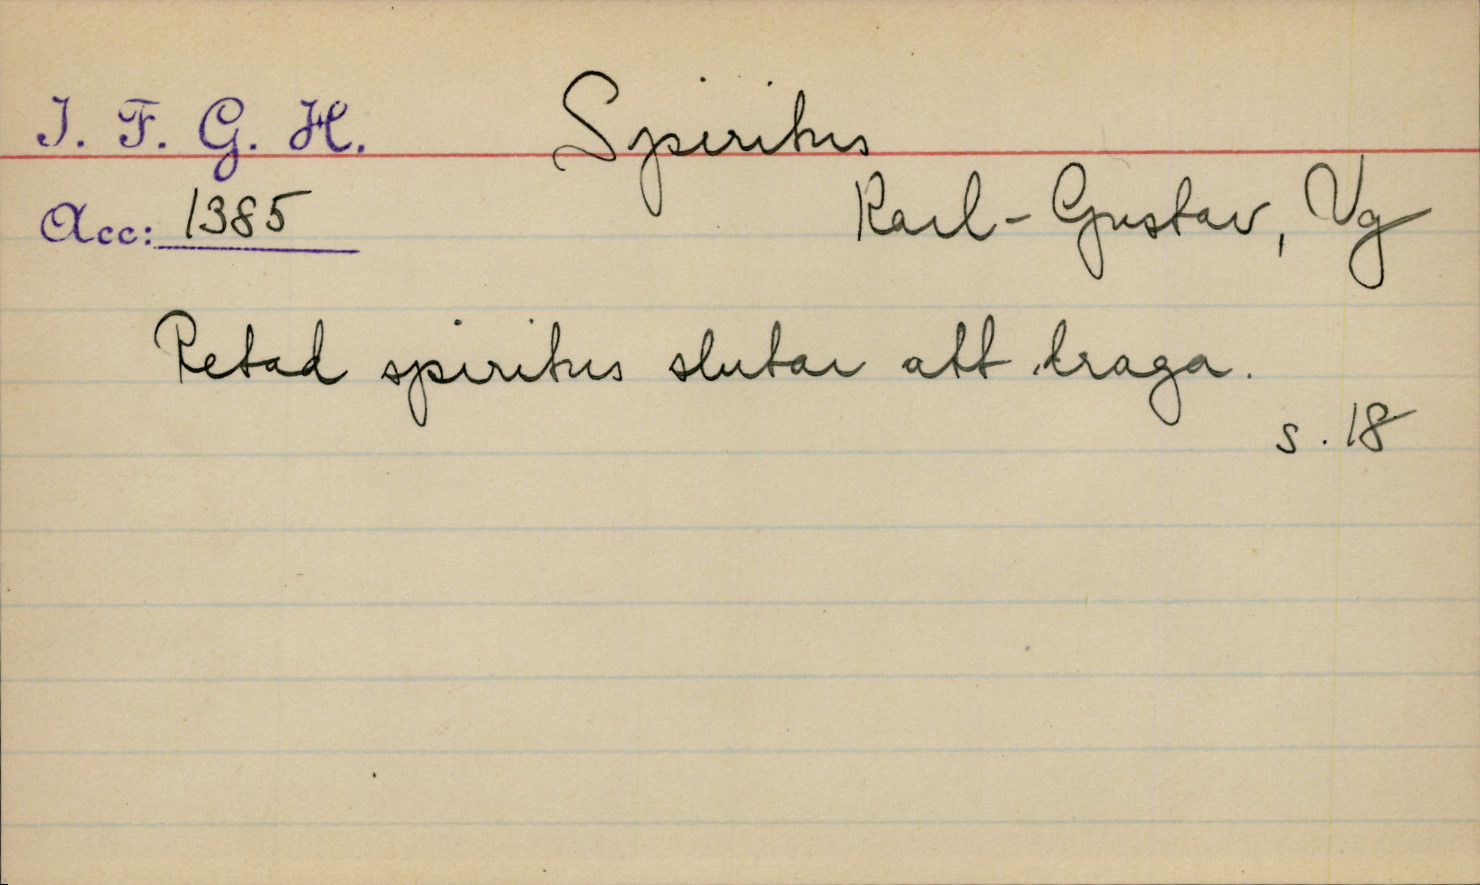 I. F. G. H. Spiritus
Acc: 1385 Karl-Gustav, Vg
Retad spiritus slutar att draga.
s. 18